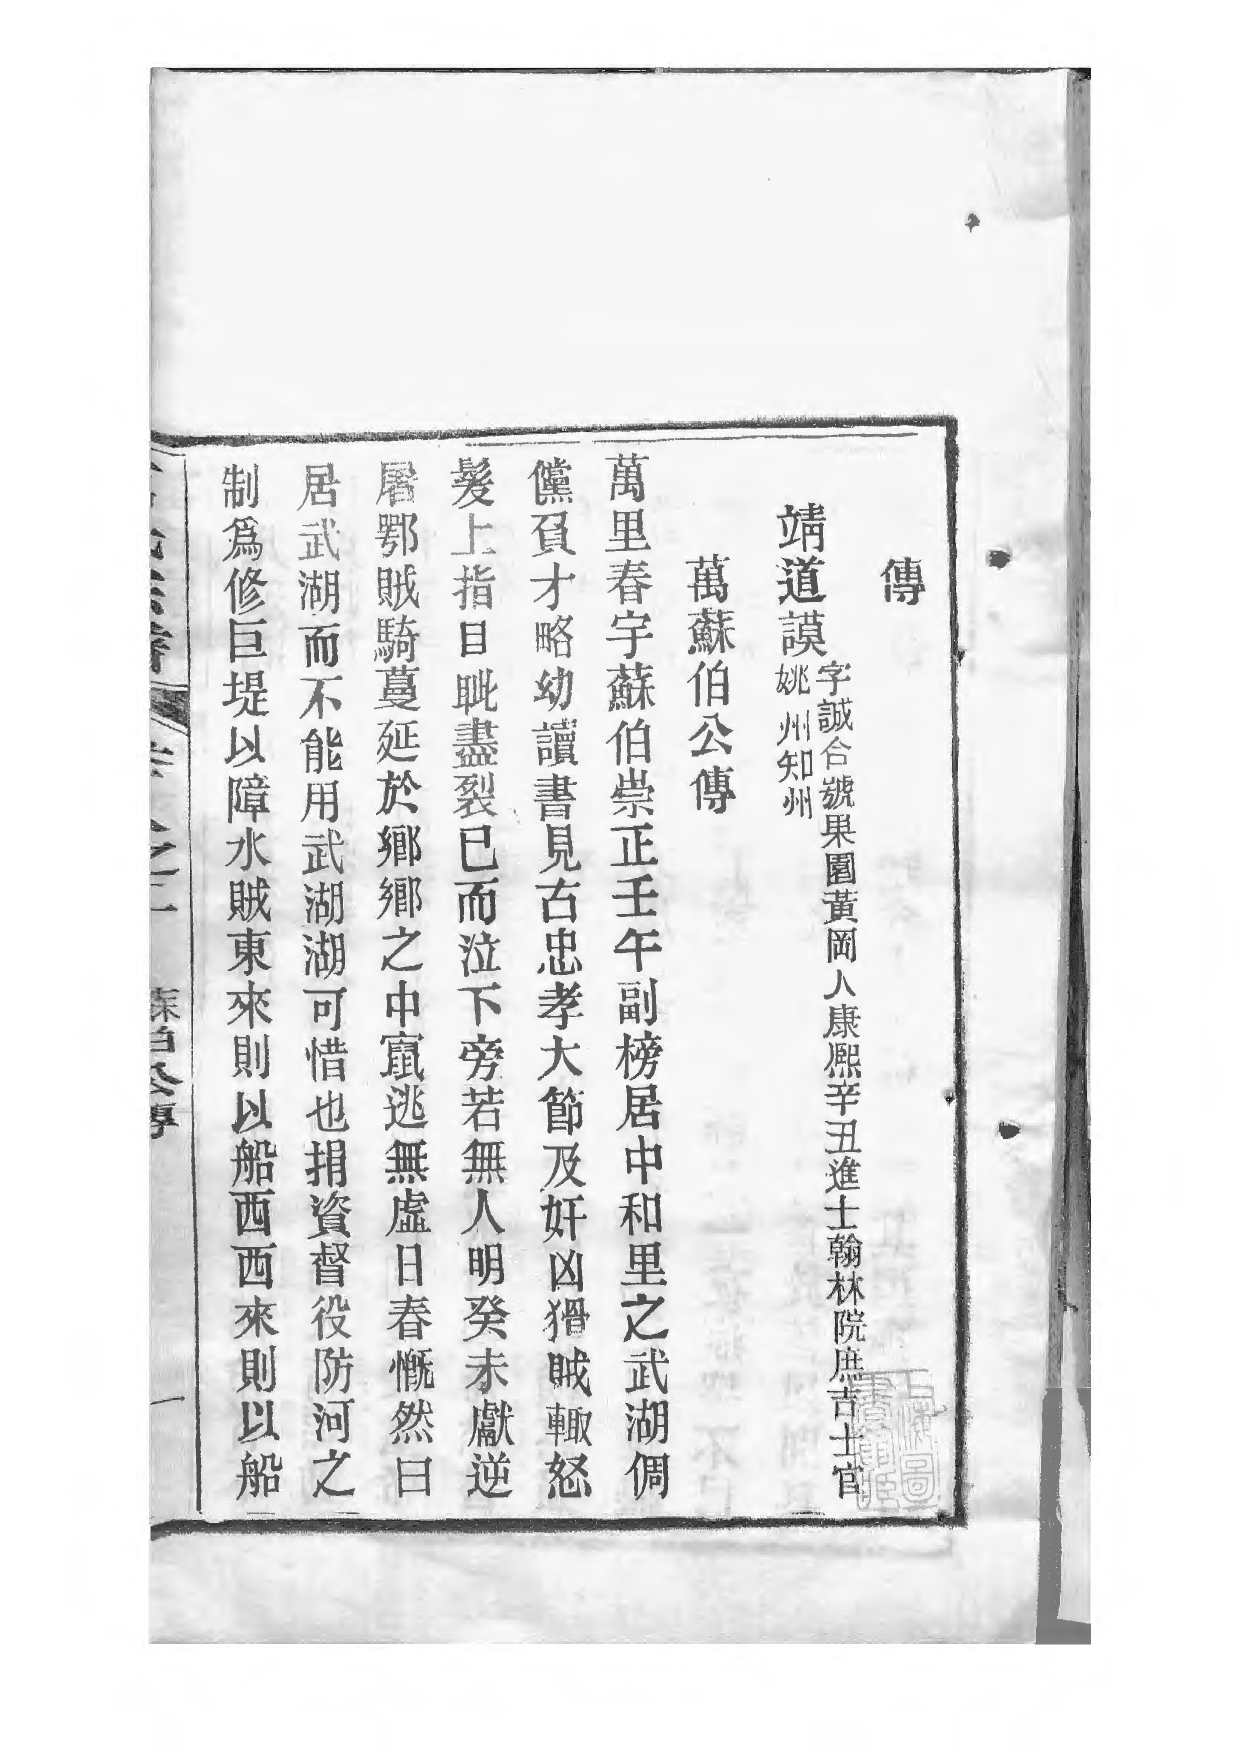 傳
靖道謨字誠合號果園黃岡人康熙辛丑進士翰林院庶吉士官
姚州知州
萬蘇伯公傳
萬里春字蘇伯崇正壬午副榜居中和里之武湖倜
儻負才略幼讀書見古忠孝大節及奸凶猾賊輙怒
髮上指目眦盡裂已而泣下旁若無人明癸未獻逆
屠鄂賊騎蔓延於鄉鄉之中竄逃無虛日春慨然曰
居武湖而不能用武湖湖可惜也捐資督役防河之
制爲修巨堤以障水賊東來則以船西西來則以船
蘇伯公傳
一